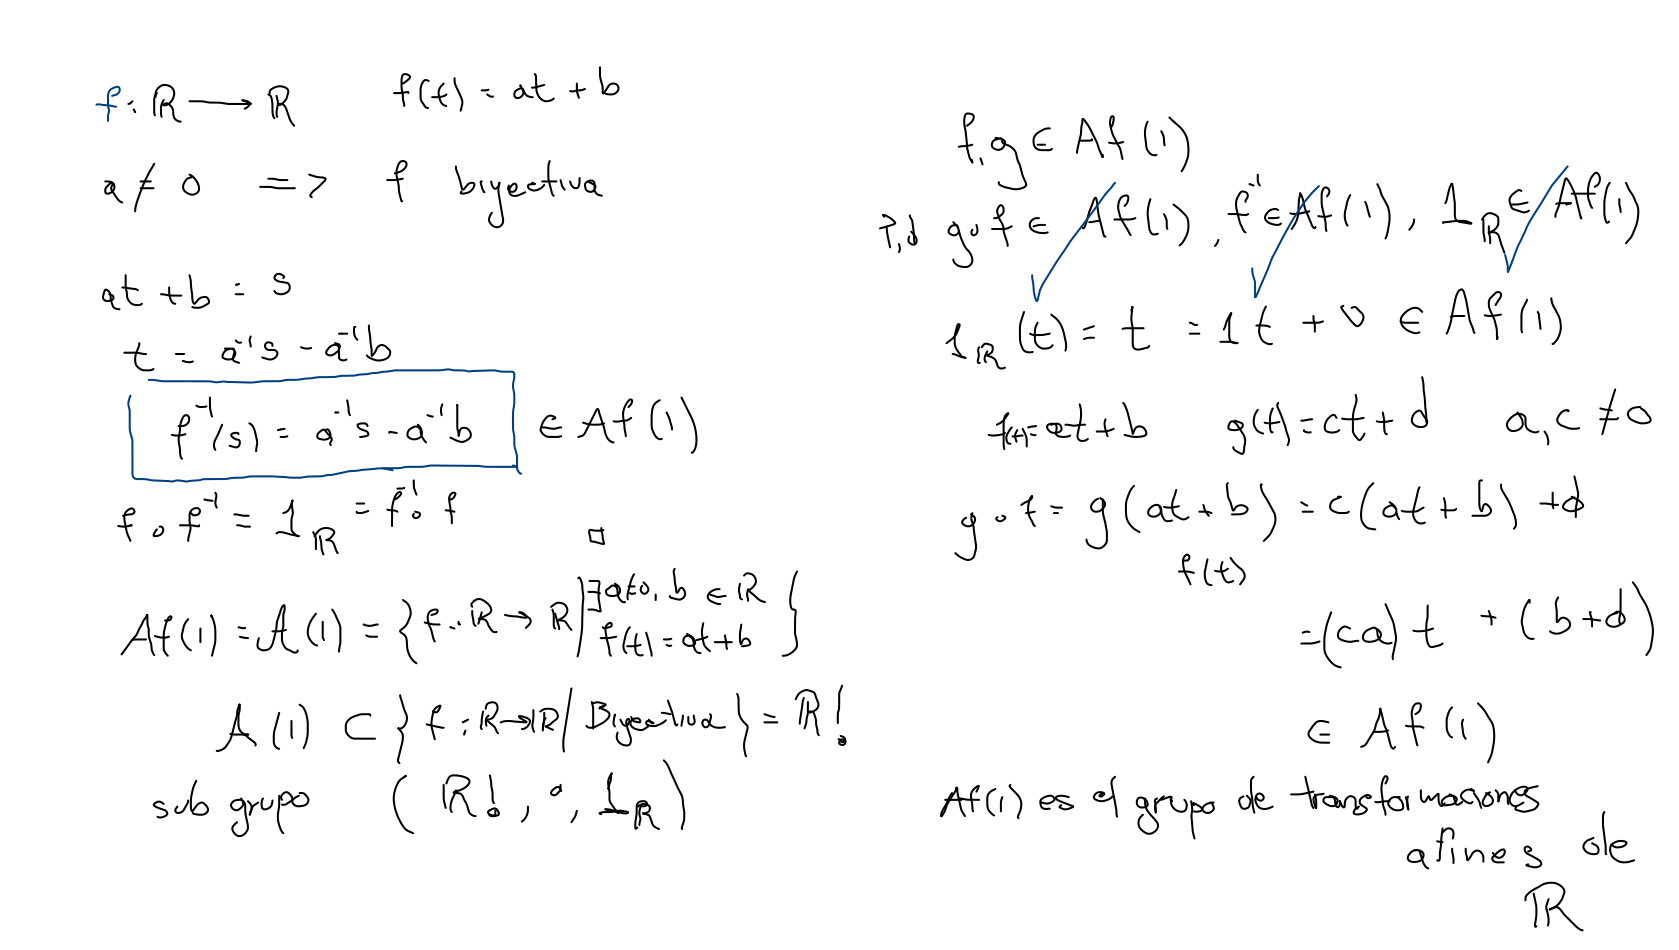 f : ℝ ⟶ ℝ   f(t) = at + b
a ≠ 0 => f biyectiva
at + b = s
t = a⁻¹s - a⁻¹b
f⁻¹(s) = a⁻¹s - a⁻¹b ∈ Af(1)
f ∘ f⁻¹ = 1_ℝ = f⁻¹ ∘ f
□
Af(1) = A(1) = { f : ℝ → ℝ | ∃ a≠0, b ∈ ℝ
f(t) = at + b }
A(1) ⊂ { f : ℝ → ℝ / Biyectiva } = ℝ!
sub grupo ( ℝ! , ∘, 1_ℝ )
f, g ∈ Af(1)
P,d g∘f ∈ Af(1), f⁻¹ ∈ Af(1), 1_ℝ ∈ Af(1)
1_ℝ (t) = t = 1t + 0 ∈ Af(1)
f(t) = at + b   g(t) = ct + d   a, c ≠ 0
g∘f = g(at + b) = c(at + b) + d
f(t)
= (ca)t + (b + d)
∈ Af(1)
Af(1) es el grupo de transformaciones
afines de
ℝ